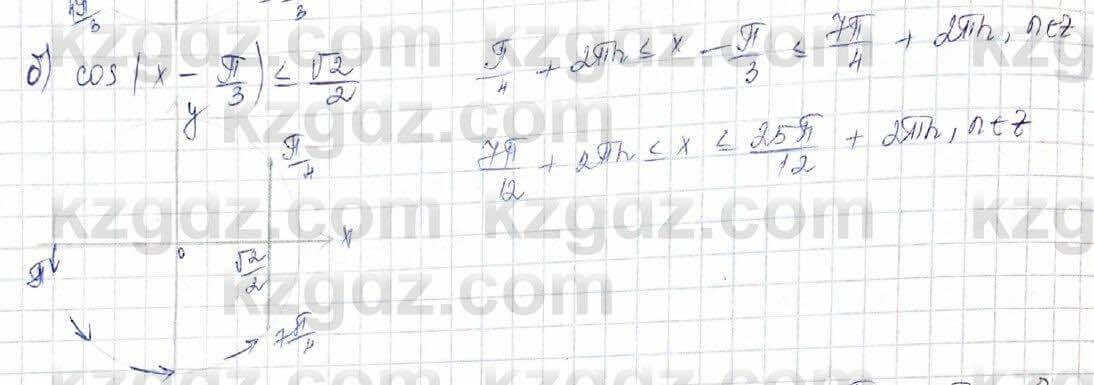 19π/3 π/3
б) cos(x - π/3) ≤ √2/2
π/4 + 2πn ≤ x - π/3 ≤ 7π/4 + 2πn, n∈Z
7π/12 + 2πn ≤ x ≤ 25π/12 + 2πn, n∈Z
y
π/4
0 √2/2 x
π
7π/4
kzgdz.com
kzgdz.com
kzgdz.com
kzgdz.com
kzgdz.com
kzgdz.com